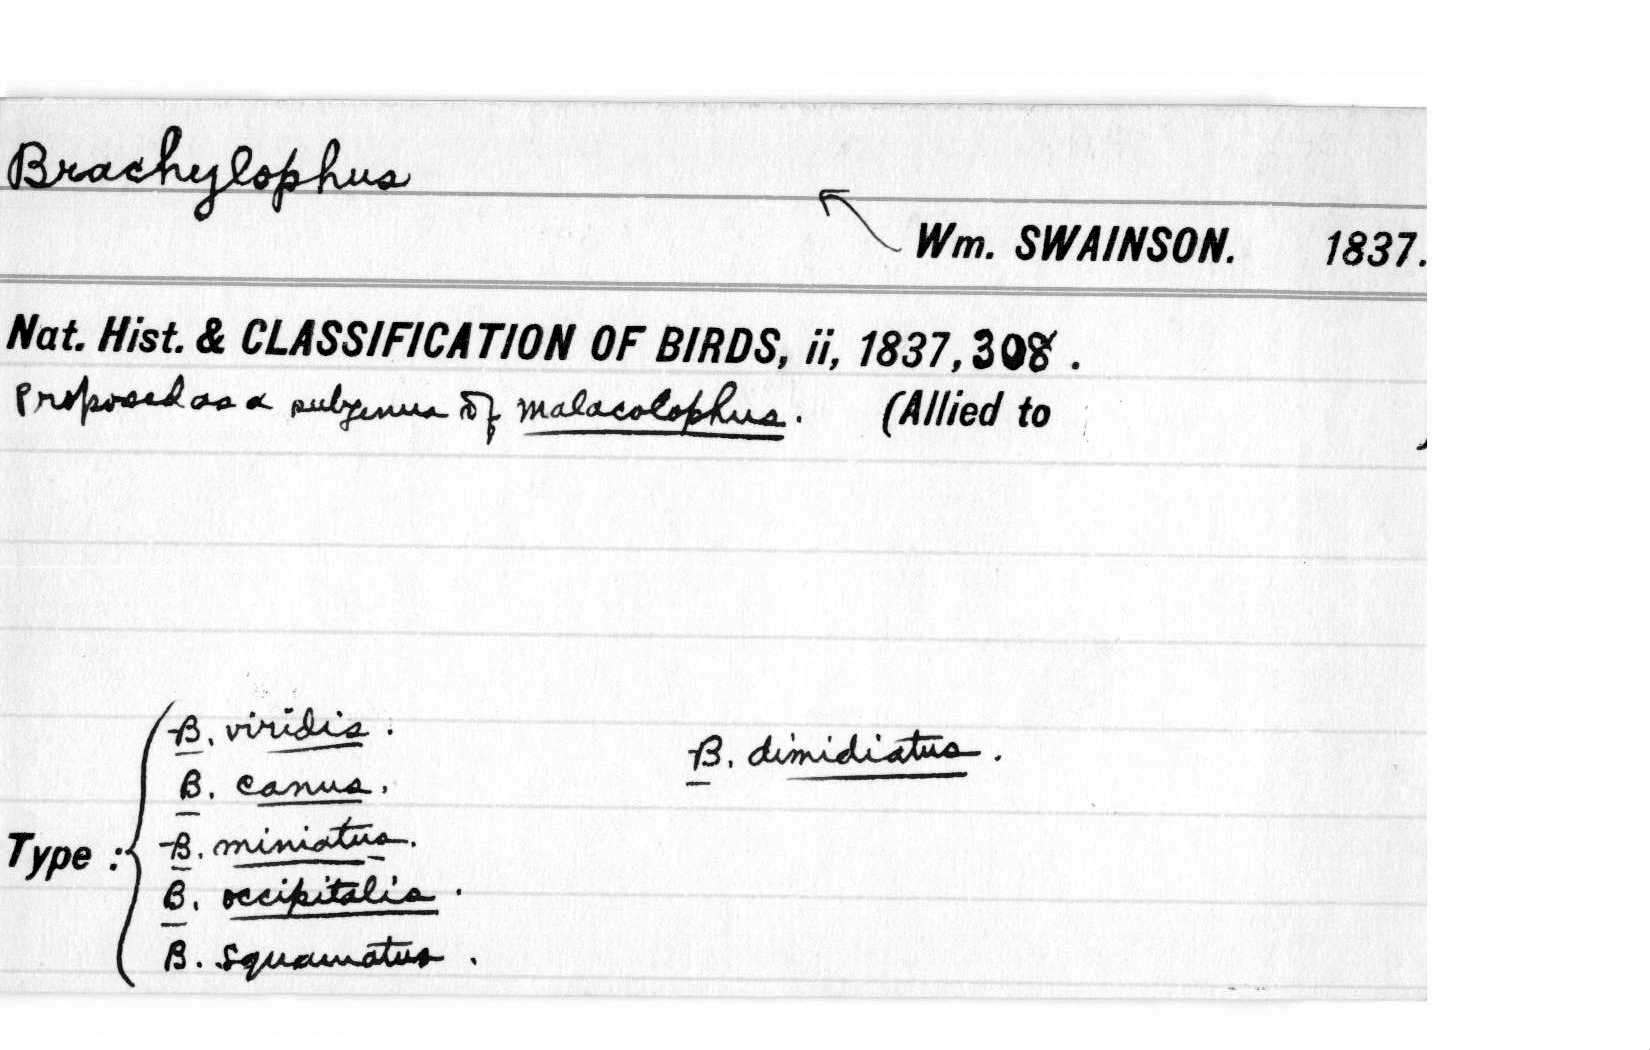 Brachylophus
Wm. SWAINSON. 1837.
Nat. Hist. & CLASSIFICATION OF BIRDS, ii, 1837, 308.
Proposed as a subgenus of malacolophus. (Allied to )
B. viridis.
B. dimidiatus.
B. canus.
Type: B. miniatus.
B. occipitalis.
B. squamatus.